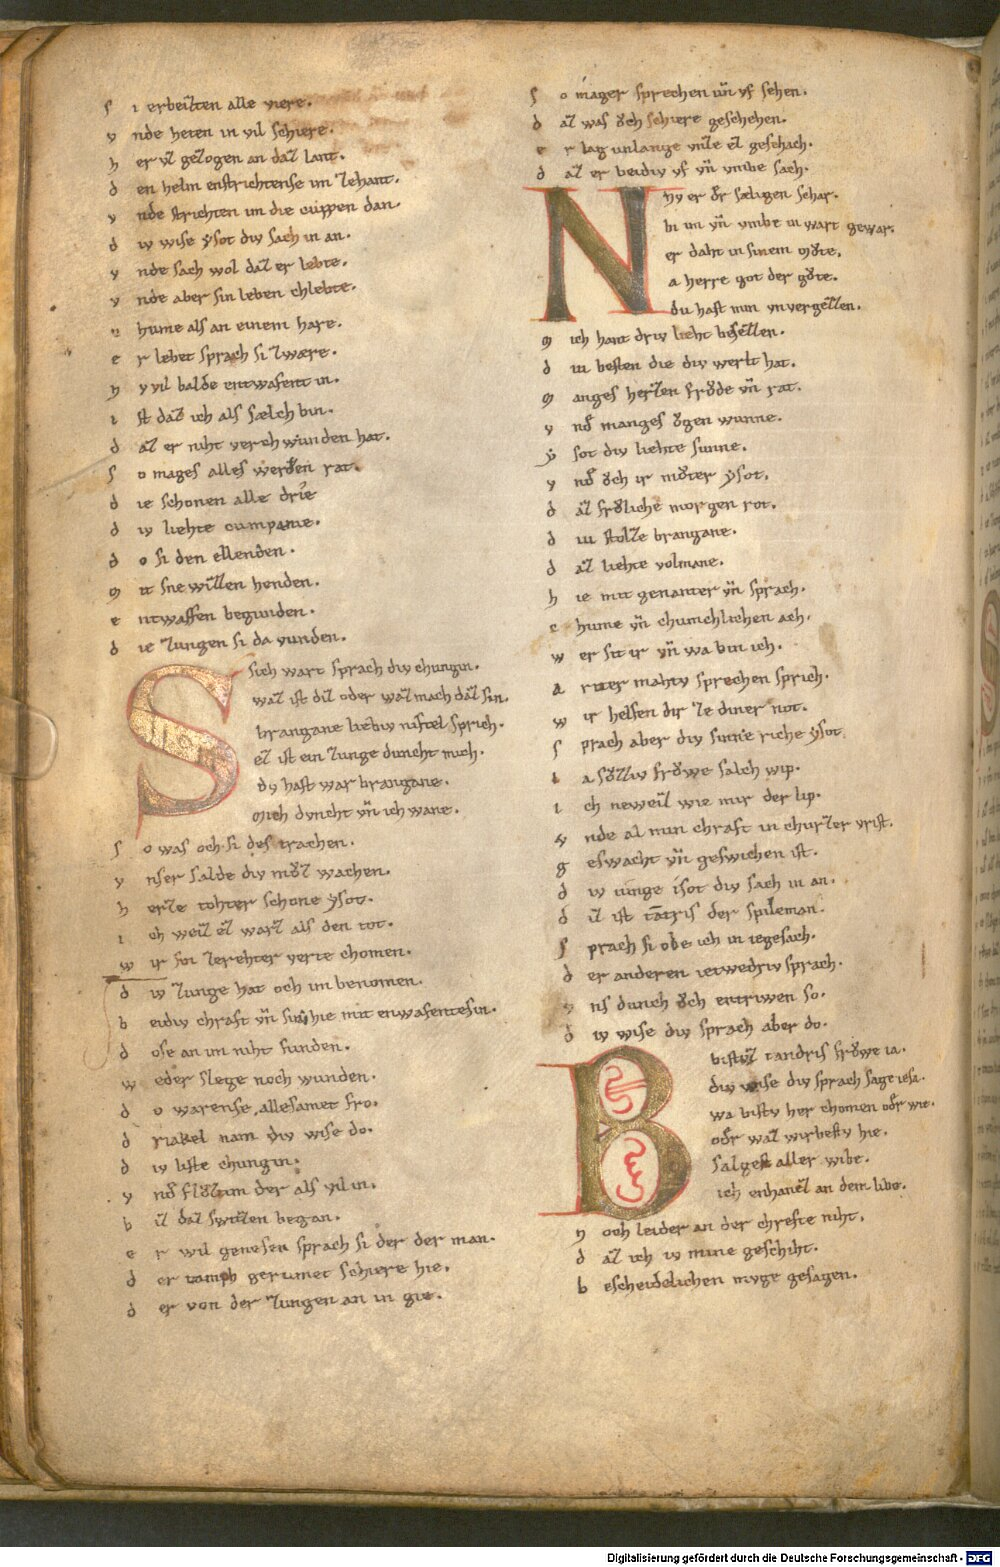 s i erbeizten alle viere.
v nde heten in vil schiere.
h er vz gezogen an daz lant.
d en helm enstrichtense im zehant.
v nde strichten im die cuppen dan.
d iv wise ysot div sach in an.
v nde sach wol daz er lebte.
v nde aber sin leben chlebte.
c hume als an einem hare.
e r lebet sprach si zware.
n v vil balde entwafent in.
i st daz ich als sælich bin.
d az er niht verchwunden hat.
s o mages alles werden rat.
d ie schonen alle drie
d iv liehte cumpanie.
d o si den ellenden.
m it snewizen henden.
e ntwaffen begunden.
d ie zungen si da vunden.
Sich wart sprach div chungin.
waz ist diz oder waz mach daz sin.
brangane liebiv niftel sprich.
ez ist ein zunge duncht mich.
dv hast war brangane.
mich dvncht vn̄ ich wane.
s o was och si des trachen.
v nser salde div mv̊z wachen.
h erze tohter schone ysot.
i ch weiz ez warz als den tot.
w ir sin zerehter verte chomen.
d iv zunge hat och im benomen.
b eidiv chraft vn̄ sin hie mit enwafentesin.
d ose an im niht funden.
w eder slege noch wunden.
d o warense allesamet fro.
d riakel nam div wise do.
d iv liste chungin.
v nd flozim der als vil in.
b iz daz swizen began.
e r wil genesen sprach si der der man.
d er tampf gerumet schiere hie.
d er von der zungen an in gie.
s o mager sprechen vn̄ vf sehen.
d az was o̊ch schiere geschehen.
e r lag unlange vnze ez geschach.
d az er beidiv vf vn̄ vmbe sach.
Nv er dr sæligen schar.
bi im vn̄ vmbe in wart gewar.
er daht in sinem mv̊te.
a herre got der gv̊te.
du hast min vnvergezzen.
m ich hant driv lieht besezzen.
d iu besten die div werlt hat.
m anges herzen fro̊de vn̄ rat.
v nd manges o̊gen wunne.
y sot div liehte sunne.
v nd o̊ch ir mv̊ter ysot.
d az fro̊liche morgen rot.
d iu stolze brangane.
d az liehte volmane.
h ie mit genanter vn̄ sprach.
c hume vn̄ chumchlichen ach.
w er sit ir vn̄ wa bin ich.
a riter mahtv sprechen sprich.
w ir helfen dir ze diner not.
s prach aber div sinne riche ysot.
i a sv̊zziv fro̊we salch wip.
i ch neweiz wie mir der lip.
v nde al min chraft in churzer vrist.
g eswacht vn̄ geswichen ist.
d iv iunge isot div sach in an.
d iz ist tātris der spileman.
s prach si obe ich in iegesach.
d er anderen ietwedriv sprach.
v ns dunch o̊ch entriwen so.
d iv wise div sprach aber do.
Bistvz tandris fro̊we ia.
div wise div sprach sage iesa.
wa bistv her chomen odr wie.
odr waz wirbestv hie.
salgest aller wibe.
ich enhanez an dem libe.
n och leider an der chrefte niht.
d az ich iv mine geschiht.
b escheidelichen mvge gesagen.
Digitalisierung gefördert durch die Deutsche Forschungsgemeinschaft - DFG